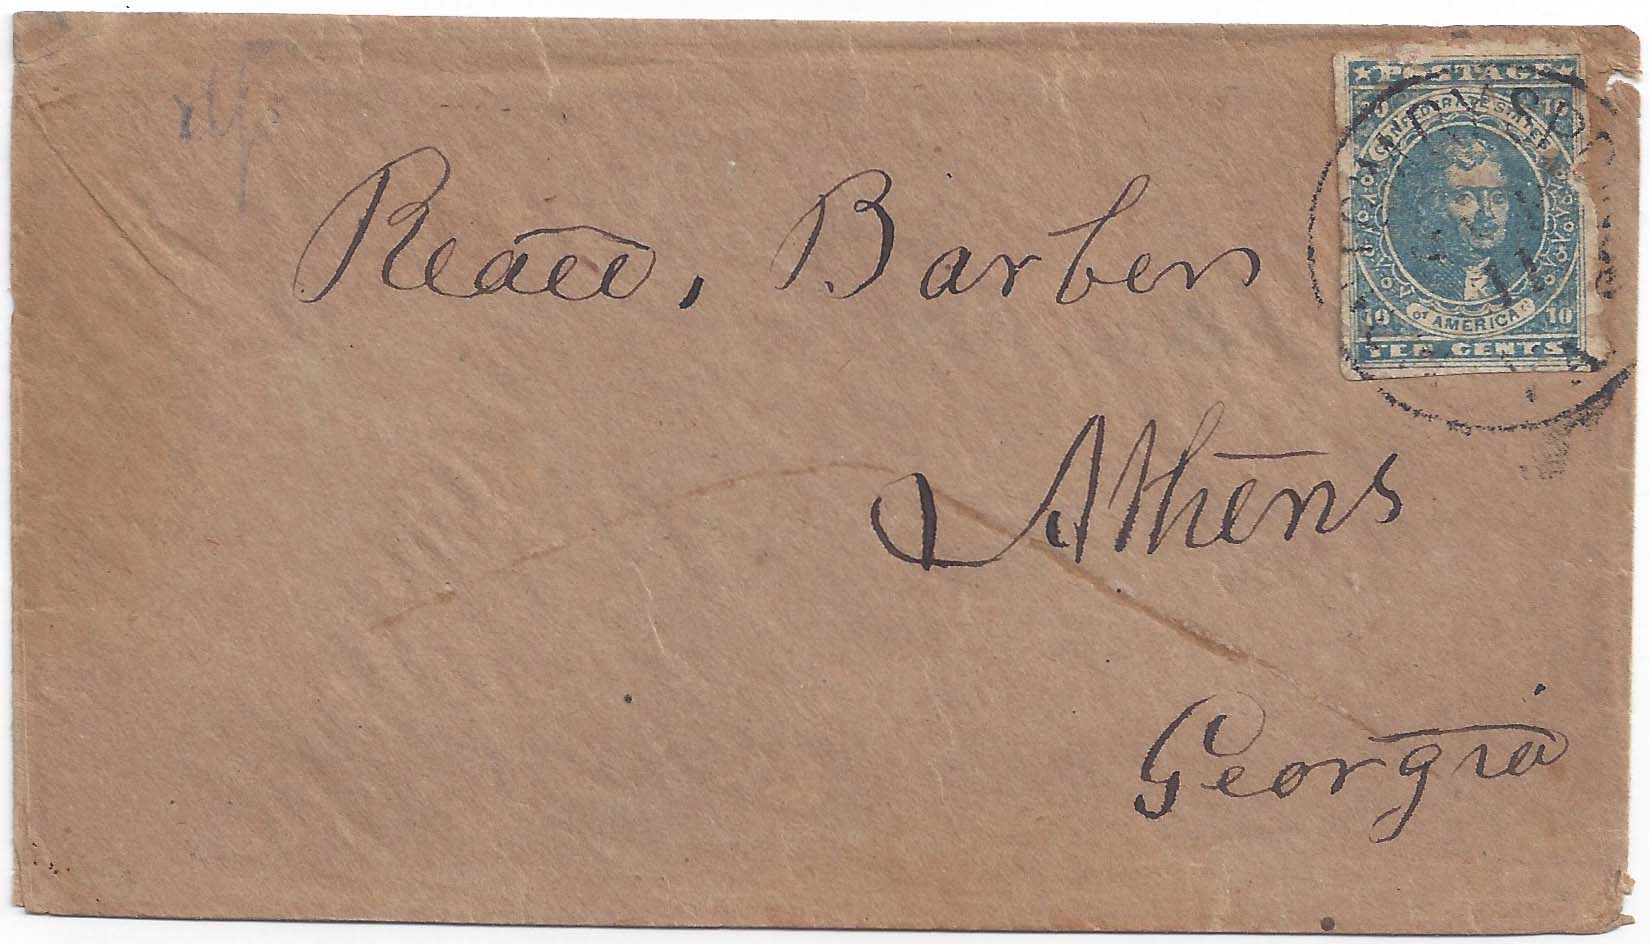 POSTAGE
10 CONFEDERATE STATES 10
of AMERICA
10 10
TEN CENTS
11
Barber
Athens
Georgia